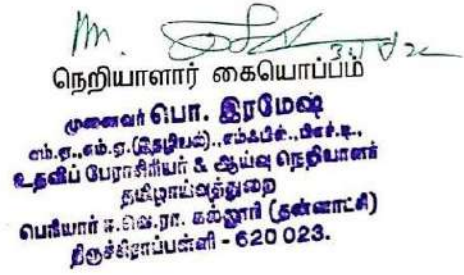 நெறியாளார் கையொப்பம்
முனைவர் பொ. இரமேஷ்
எம்.ஏ.,எம்.ஏ.(இதழியல்).,எம்ஃபில்.,பிஎச்.டி.,
உதவிப் பேராசிரியர் & ஆய்வு நெறியாளர்
தமிழாய்வுத்துறை
பெரியார் ஈ.வெ.ரா. கல்லூரி (தன்னாட்சி)
திருச்சிராப்பள்ளி - 620 023.